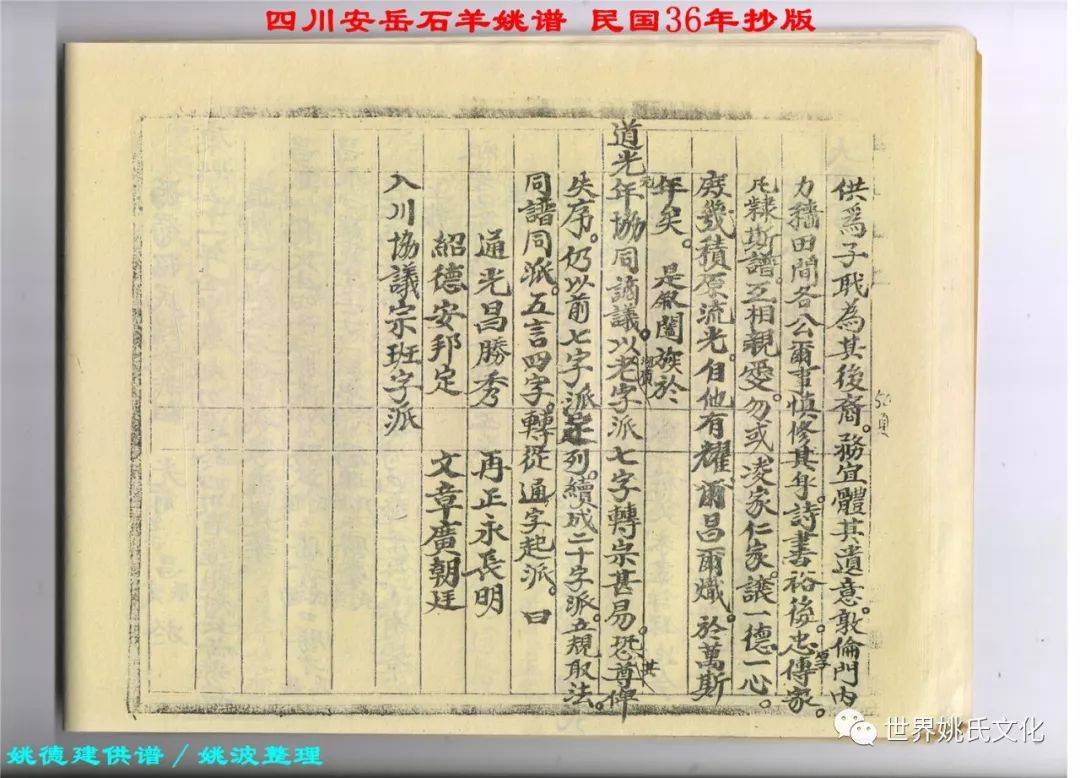 四川安岳石羊姚谱 民国36年抄版
供爲子戢為其後裔。務宜體其遺意敦倫門内
力穡田間各公爾事慎修其身。詩書裕後。忠孚傳家。
凡隸斯譜。互相親愛。勿或凌家仁家讓一德一心。
庶幾積原流光。自他有耀爾昌爾熾。於萬斯
年矣。 是叙闔族於
道光元年協同謫議。以老字派七字轉宗甚易。恐其尊俾
失序。仍以前七字派列。續成二十字派。立規取法。
同譜同派。五言四字。轉從通字起派。曰
通光昌勝秀 再正永長明
紹德安邦定 文章廣朝廷
入川協議宗班字派
姚德建供谱／姚波整理
世界姚氏文化